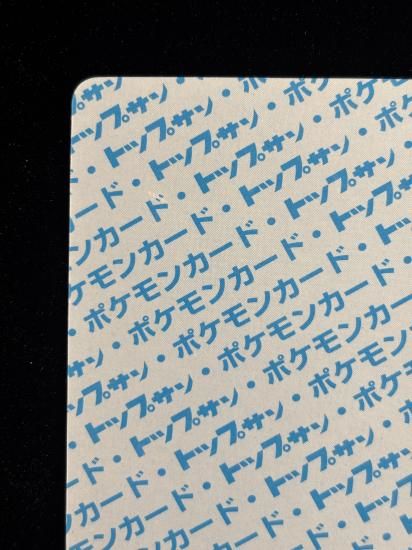 プサン
ップサン・
・トップサン・ポケ
ード・トップサン・ポケモ
カード・トップサン・ポケモン
ンカード・トップサン・ポケモン
ケモンカード・トップサン・ポケ
・ポケモンカード・トップサン・
・ポケモンカード・トップサン
サン・ポケモンカード・トップ
ップサン・ポケモンカード・
・トップサン・ポケモンカード
ド・トップサン・ポケモン
カード・トップサン・ポケ
ンカード・トップサン・